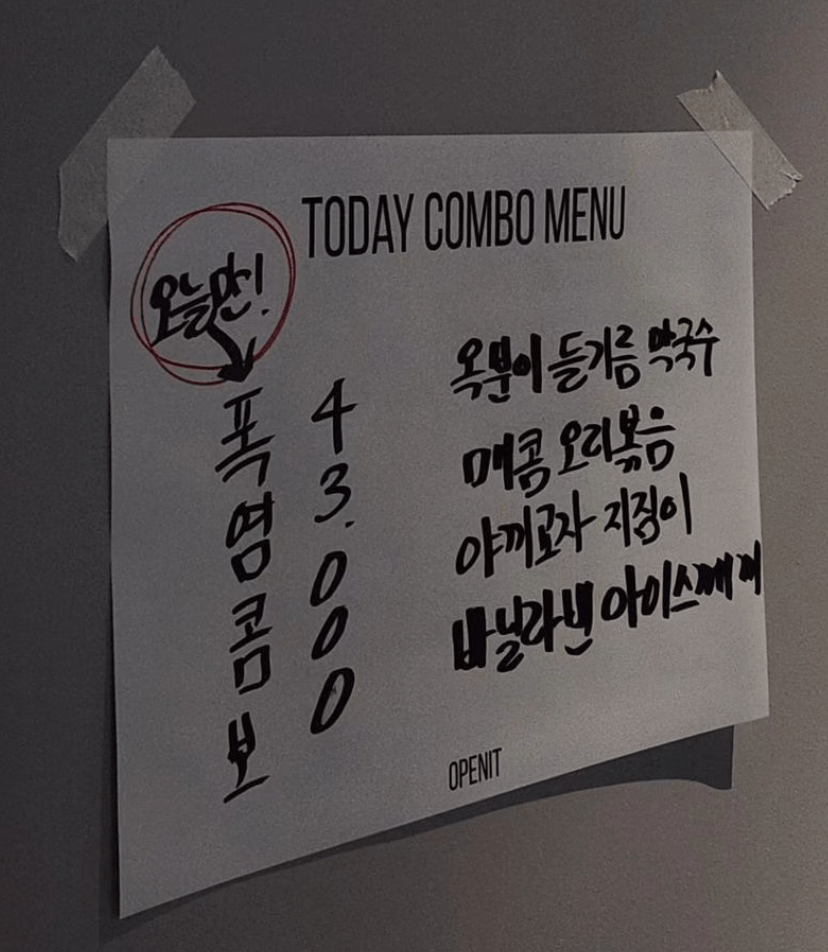 TODAY COMBO MENU
오늘만!
폭염콤보
43.000
옥분이 들기름 막국수
매콤 오리볶음
야끼교자 지짐이
바닐라빈 아이스께끼
OPENIT